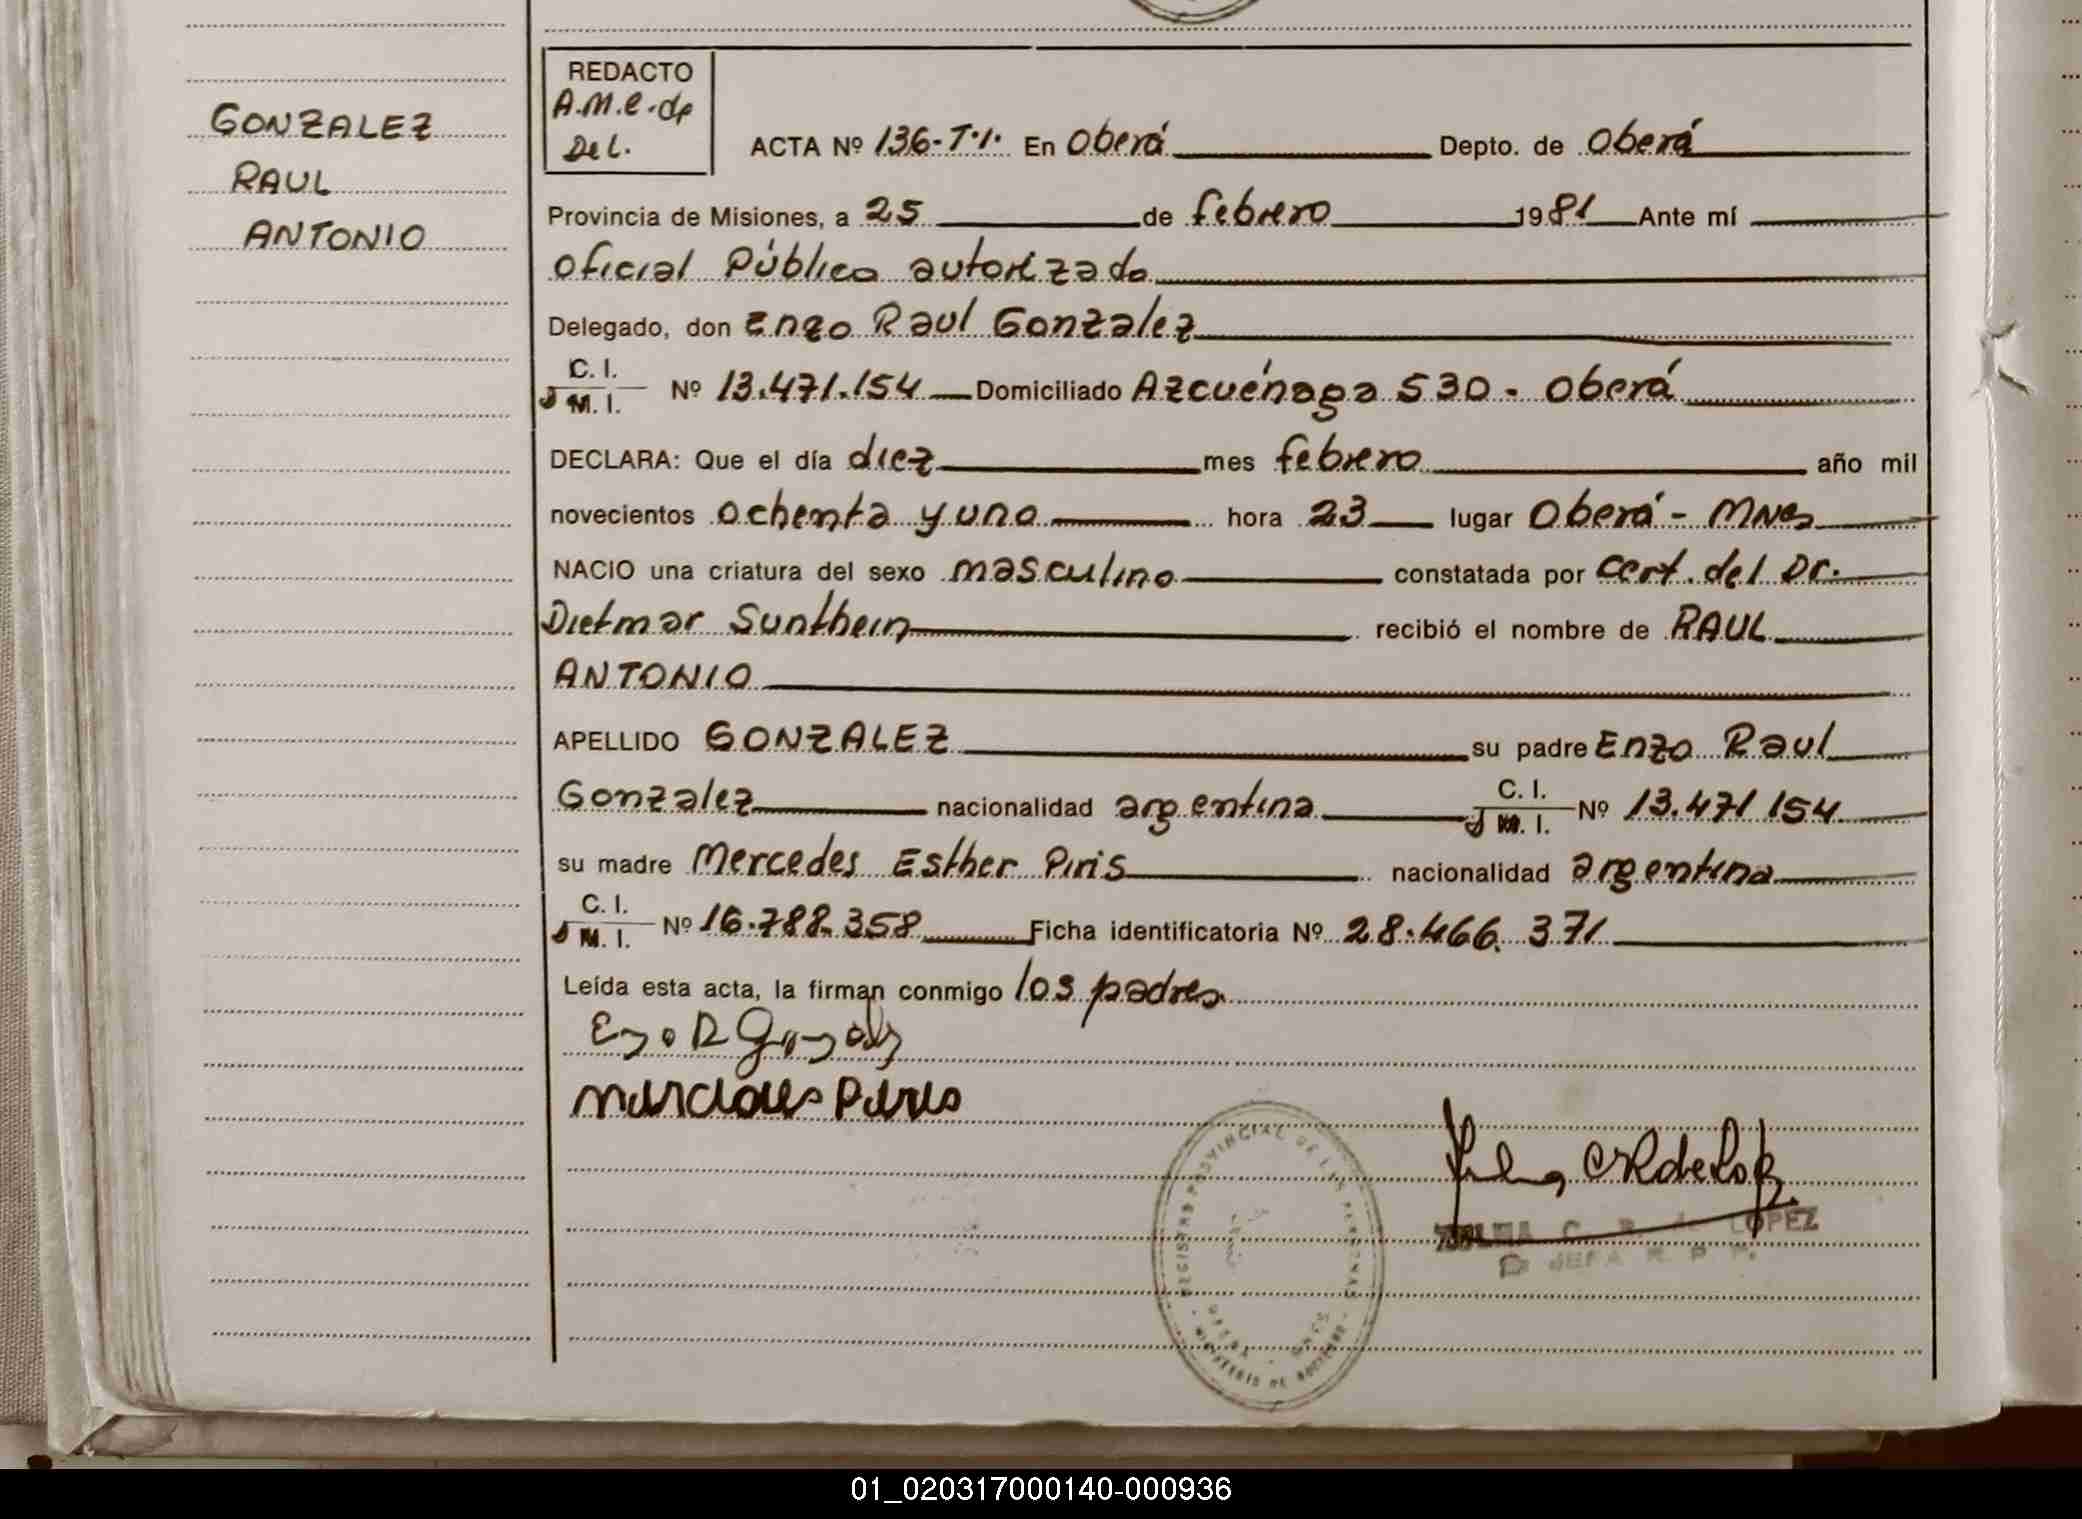 GONZALEZ
RAUL
ANTONIO
REDACTO
A.M.C. de
Del.
ACTA Nº 136-T·1· En Oberá Depto. de Oberá
Provincia de Misiones, a 25 de febrero 1981 Ante mí
Oficial Público autorizado
Delegado, don Enzo Raul Gonzalez
C. I.
M. I. Nº 13.471.154 Domiciliado Azcuénaga 530 - Oberá
DECLARA: Que el día diez mes febrero año mil
novecientos ochenta y uno hora 23 lugar Oberá - Mnes
NACIO una criatura del sexo masculino constatada por cert. del Dr.
Dietmar Sunthein recibió el nombre de RAUL
ANTONIO
APELLIDO GONZALEZ su padre Enzo Raul
Gonzalez nacionalidad argentina C. I.
M. I. Nº 13.471.154
su madre Mercedes Esther Piris nacionalidad argentina
C. I.
M. I. Nº 16.788.358 Ficha identificatoria Nº 28.466.371
Leída esta acta, la firman conmigo los padres
Enzo R Gonzalez
Mercedes Piris
REGISTRO PROVINCIAL DE LAS PERSONAS
OBERA - MNES
MINISTERIO DE GOBIERNO
C. R. de LOPEZ
JEFA R. P. P.
01_020317000140-000936